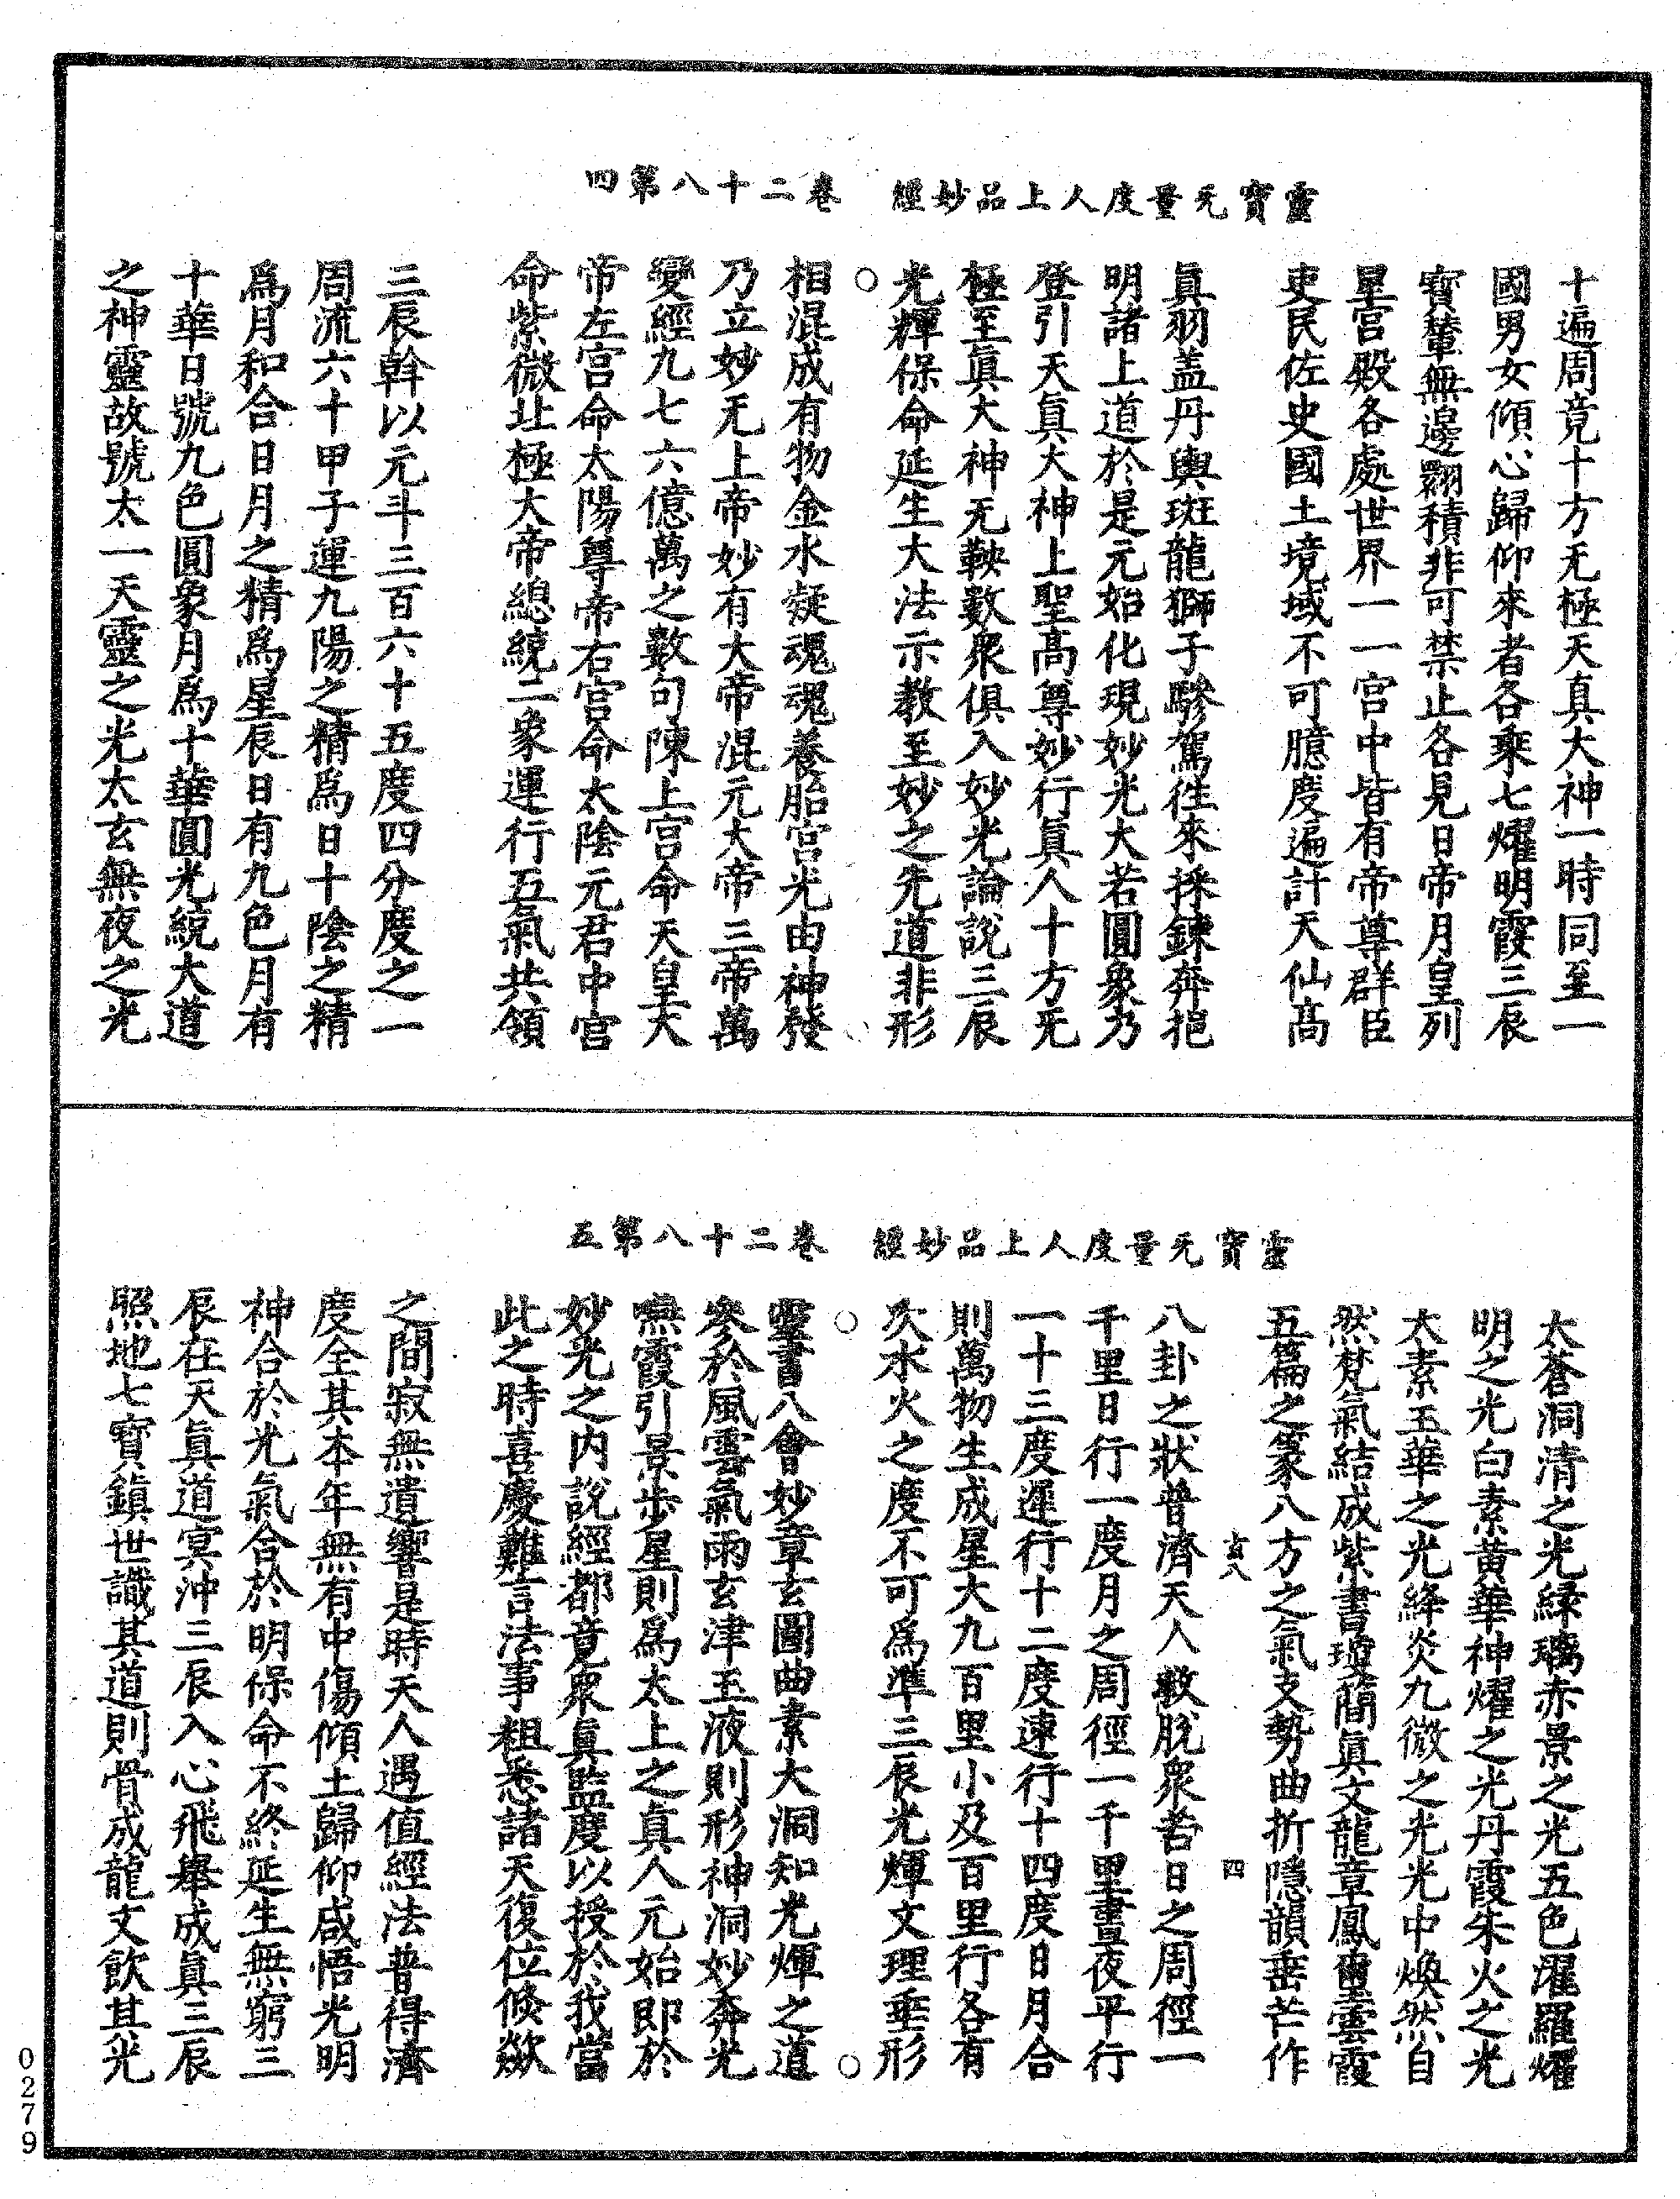 靈寶无量度人上品妙經　卷二十八第四
十遍周竟十方无極天真大神一時同至一
國男女傾心歸仰來者各乘七耀明霞三辰
寶輦無邊翾積非可禁止各見日帝月皇列
星宮殿各處世界一一宮中皆有帝尊群臣
吏民佐史國土境域不可臆度遍計天仙高
眞羽盖丹輿斑龍獅子驂駕徃來採鍊奔挹
明諸上道於是元始化現妙光大若圓象乃
登引天眞大神上聖高尊妙行眞人十方无
極至眞大神无鞅數衆俱入妙光論說三辰
光輝保命延生大法示教至妙之先道非形
相混成有物金水凝魂魂養胎宮光由神發
乃立妙无上帝妙有大帝混元大帝三帝萬
變經九七六億萬之數句陳上宮命天皇大
帝左宮命太陽尊帝右宮命太陰元君中宮
命紫微北極大帝總統二象運行五氣共領
三辰斡以元斗三百六十五度四分度之一
周流六十甲子運九陽之精爲日十陰之精
爲月和合日月之精爲星辰日有九色月有
十華日號九色圓象月爲十華圓光統大道
之神靈故號太一天靈之光太玄無夜之光
靈寶无量度人上品妙經　卷二十八第五
太蒼洞清之光緑璃赤景之光五色濯羅耀
明之光白素黄華神燿之光丹霞朱火之光
太素玉華之光絳炎九微之光光中煥然自
然梵氣結成紫書瓊簡眞文龍章鳳璽雲霞
五篇之篆八方之氣支勢曲折隱韻垂芒作
玄八　四
八卦之狀普濟天人救脫衆苦日之周徑一
千里日行一度月之周徑一千里晝夜平行
一十三度遲行十二度速行十四度日月合
則萬物生成星大九百里小及百里行各有
次水火之度不可爲準三辰光煇文理垂形
靈書八會妙章玄圖曲素大洞知光煇之道
參於風雲氣雨玄津玉液則形神洞妙奔光
嚥霞引景步星則爲太上之眞人元始即於
妙光之内說經都竟衆眞監度以授於我當
此之時喜慶難言法事粗悉諸天復位倐歘
之間寂無遺響是時天人遇值經法普得濟
度全其本年無有中傷傾土歸仰咸悟光明
神合於光氣合於明保命不終延生無窮三
辰在天眞道冥沖三辰入心飛舉成眞三辰
照地七寶鎭世識其道則骨成龍文飲其光
0279